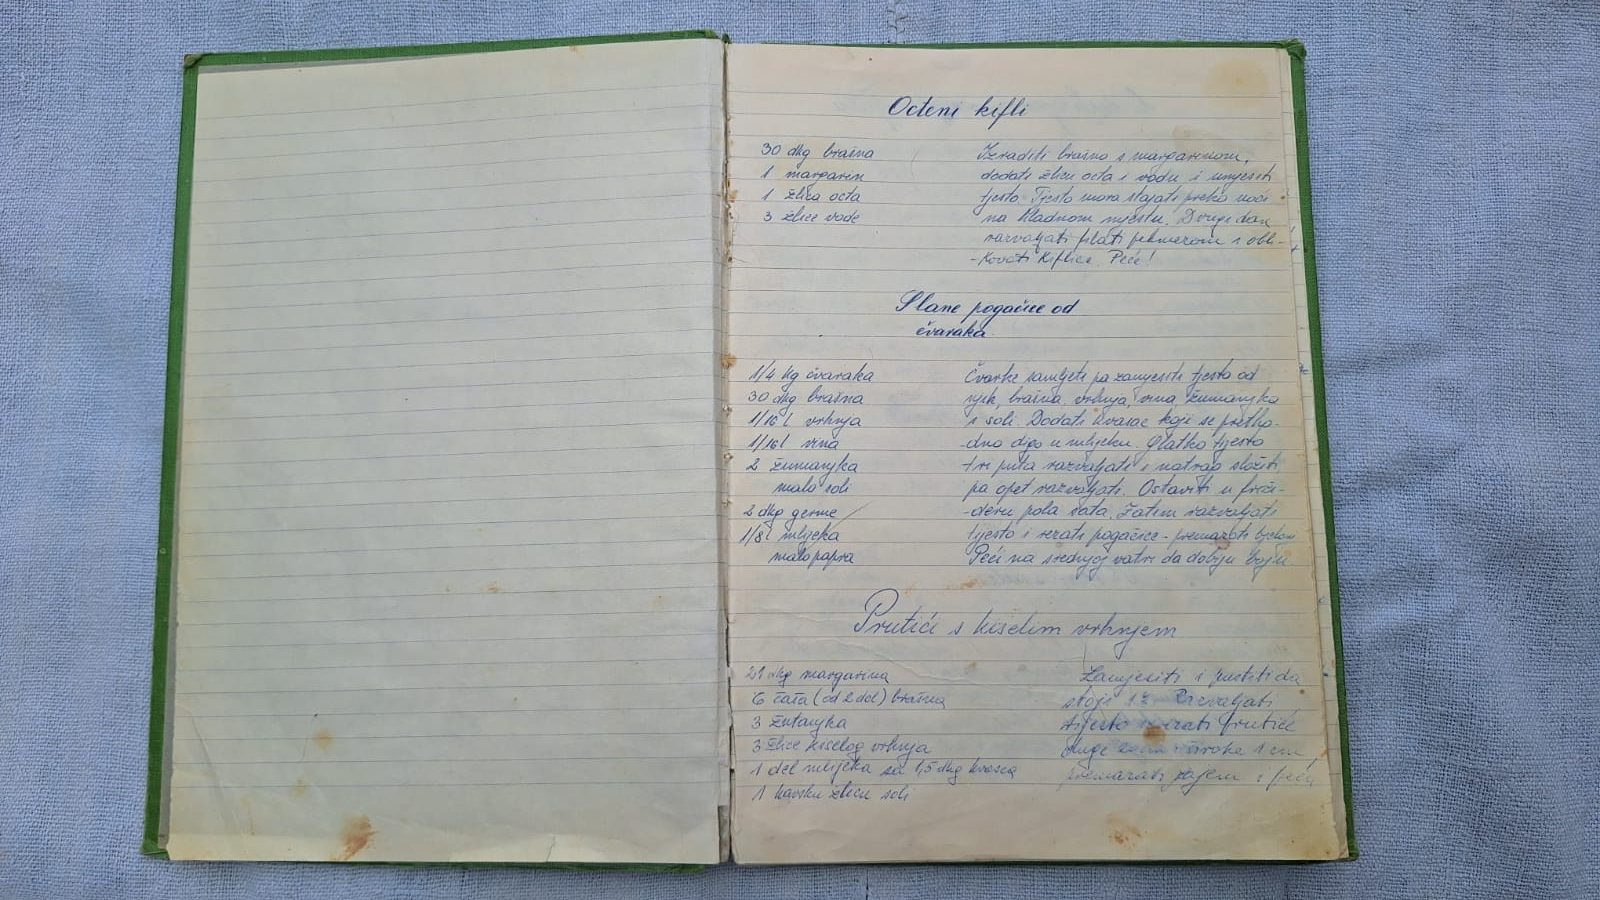 Octeni kifli
30 dkg brašna
1 margarin
1 žlica octa
3 žlice vode
Izraditi brašno s margarinom,
dodati žlicu octa i vodu i umjesiti
tjesto. Tjesto mora stajati preko noći
na hladnom mjestu. Drugi dan
razvaljati filati pekmezom i obli-
-kovati kiflice. Peče!
Slane pogačice od
čvaraka
1/4 kg čvaraka
30 dkg brašna
1/16 l vrhnja
1/16 l vina
2 žumanjka
malo soli
2 dkg germe
1/8 l mlijeka
malo papra
Čvarke samljeti pa zamjesiti tjesto od
njih, brašna, vrhnja, vina žumanjka
i soli. Dodati kvasac koji se pretho-
-dno digo u mlijeku. Glatko tjesto
tri puta razvaljati i natrag složiti
pa opet razvaljati. Ostaviti u friži-
-deru pola sata. Zatim razvaljati
tjesto i rezati pogačice - premazati
Peći na srednjoj vatri da dobiju boju
Prutići s kiselim vrhnjem
dkg margarina
6 čaša (od 2 del) brašna
3 žutanjka
3 žlice kiselog vrhnja
1 del mlijeka sa 1,5 dkg kvasca
1 kavsku žlicu soli
Zamjesiti i pustiti da
stoji Razvaljati
tijesto rezati prutiće
duge široke 1 cm
premazati jajem i peći